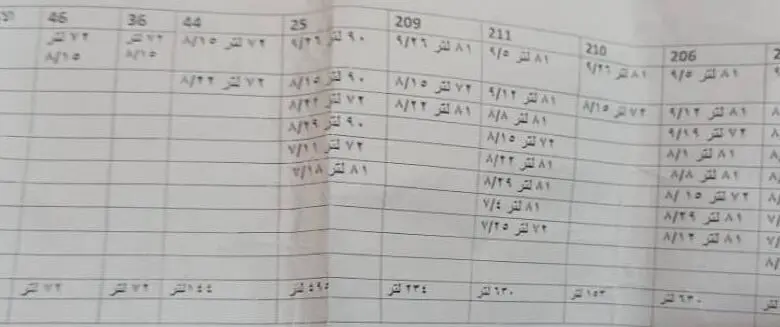 206 210 211 209 25 44 36 46
٨١ لتر ٩/٥ ٨١ لتر ٩/٢٦ ٨١ لتر ٩/٥ ٨١ لتر ٩/٢٦ ٩٠ لتر ٩/٢٦ ٧٢ لتر ٨/١٥ ٧٢ لتر ٧٢ لتر
٨/١٥ ٨/١٥
٨١ لتر ٩/١٢ ٧٢ لتر ٨/١٥ ٨١ لتر ٩/١٢ ٧٢ لتر ٨/١٥ ٩٠ لتر ٨/١٥ ٧٢ لتر ٨/٢٢
٧٢ لتر ٩/١٩ ٨١ لتر ٨/٨ ٨١ لتر ٨/٢٢ ٧٢ لتر ٨/٢٢
٨١ لتر ٨/١ ٧٢ لتر ٨/١٥ ٩٠ لتر ٨/٢٩
٨١ لتر ٨/٨ ٨١ لتر ٨/٢٢ ٧٢ لتر ٧/١١
٧٢ لتر ١٥ /٨ ٨١ لتر ٨/٢٩ ٨١ لتر ٧/١٨
٨١ لتر ٨/٢٩ ٨١ لتر ٧/٤
٨١ لتر ٨/١٢ ٧٢ لتر ٧/٢٥
٦٣٠ لتر ١٥٣ لتر ٦٣٠ لتر ٢٣٤ لتر ٤٩٥ لتر ١٤٤ لتر ٧٢ لتر ٧٢ لتر